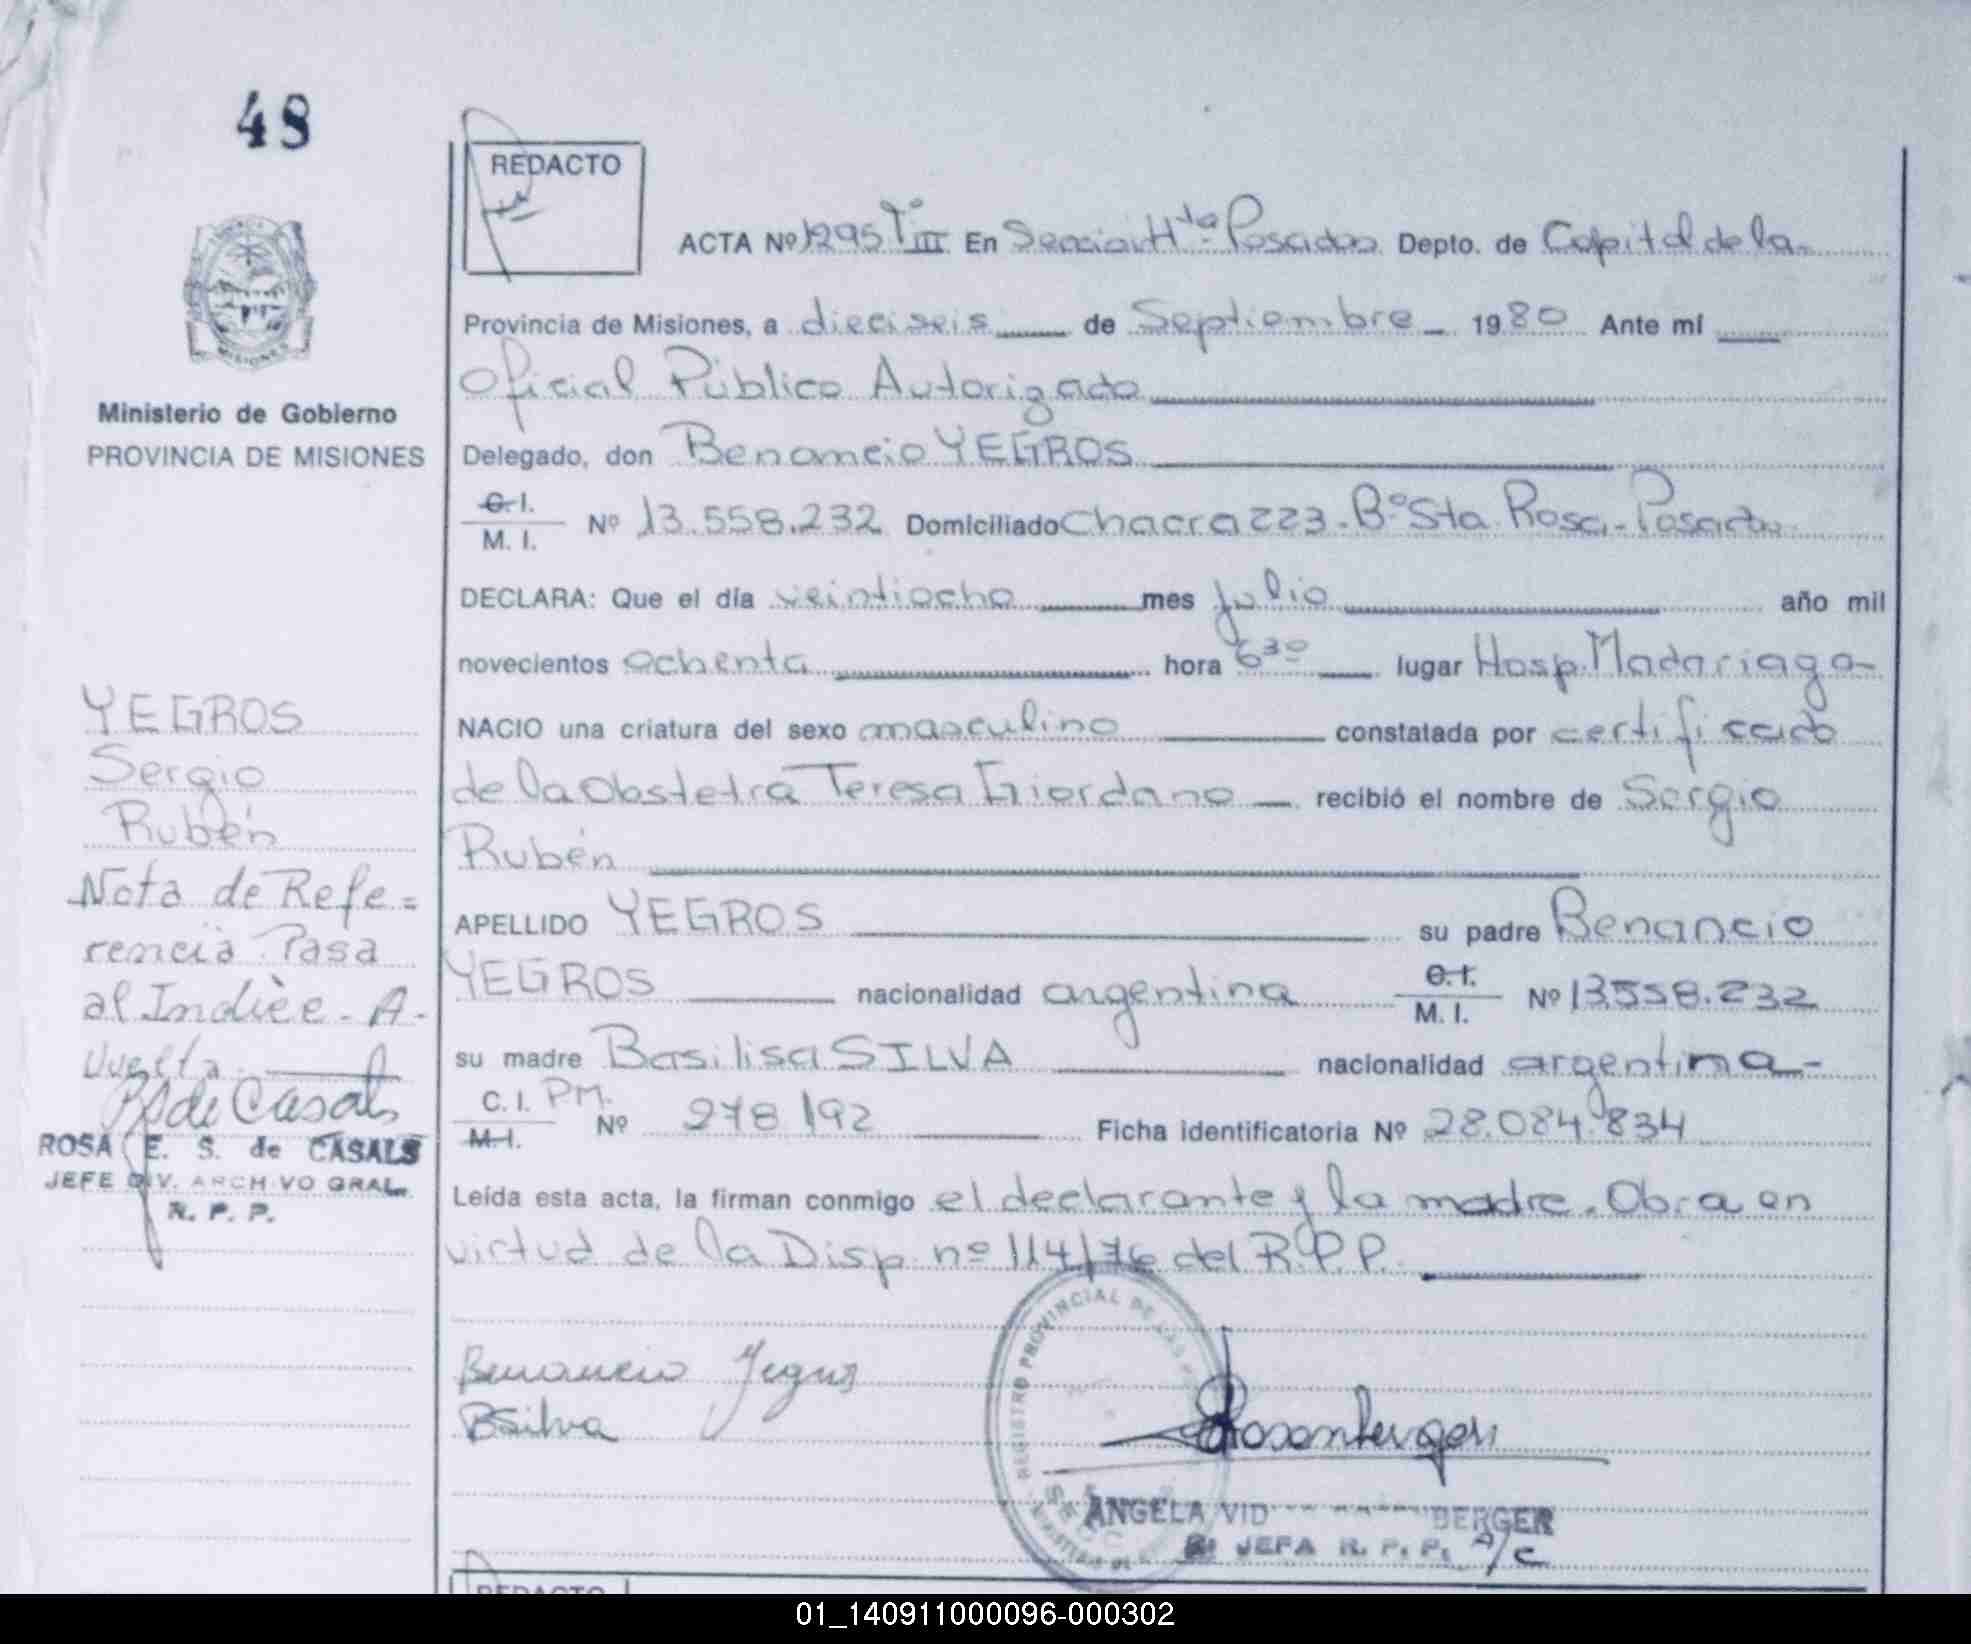 48
REDACTO
ACTA Nº 1295 Tº III En Sección 4ta Posadas Depto. de Capital de la
Provincia de Misiones, a dieciseis de Septiembre 1980 Ante mí
Oficial Público Autorizado
Delegado, don Benancio YEGROS
C.I.
M. I. Nº 13.558.232 Domiciliado Chacra 223. Bº Sta. Rosa - Posadas
DECLARA: Que el día veintiocho mes julio año mil
novecientos ochenta hora 6 30 lugar Hosp. Madariaga
NACIO una criatura del sexo masculino constatada por certificado
de la Obstetra Teresa Giordano recibió el nombre de Sergio
Rubén
APELLIDO YEGROS su padre Benancio
YEGROS nacionalidad argentina C.I. M. I. Nº 13.558.232
su madre Basilisa SILVA nacionalidad argentina
C. I. PM. M.I. Nº 278.192 Ficha identificatoria Nº 28.084.834
Leída esta acta, la firman conmigo el declarante y la madre. Obra en
virtud de la Disp. nº 114/76 del R.P.P.
Benancio Yegros
BSilva
REGISTRO PROVINCIAL DE LAS
Rosenberger
ANGELA VID BERGER
JEFA R. P. P. A/C
REDACTO
Ministerio de Gobierno
PROVINCIA DE MISIONES
YEGROS
Sergio
Rubén
Nota de Refe=
rencia Pasa
al Indice - A -
Vuelta
de Casals
ROSA E. S. de CASALS
JEFE DIV. ARCHIVO GRAL.
R. P. P.
01_140911000096-000302